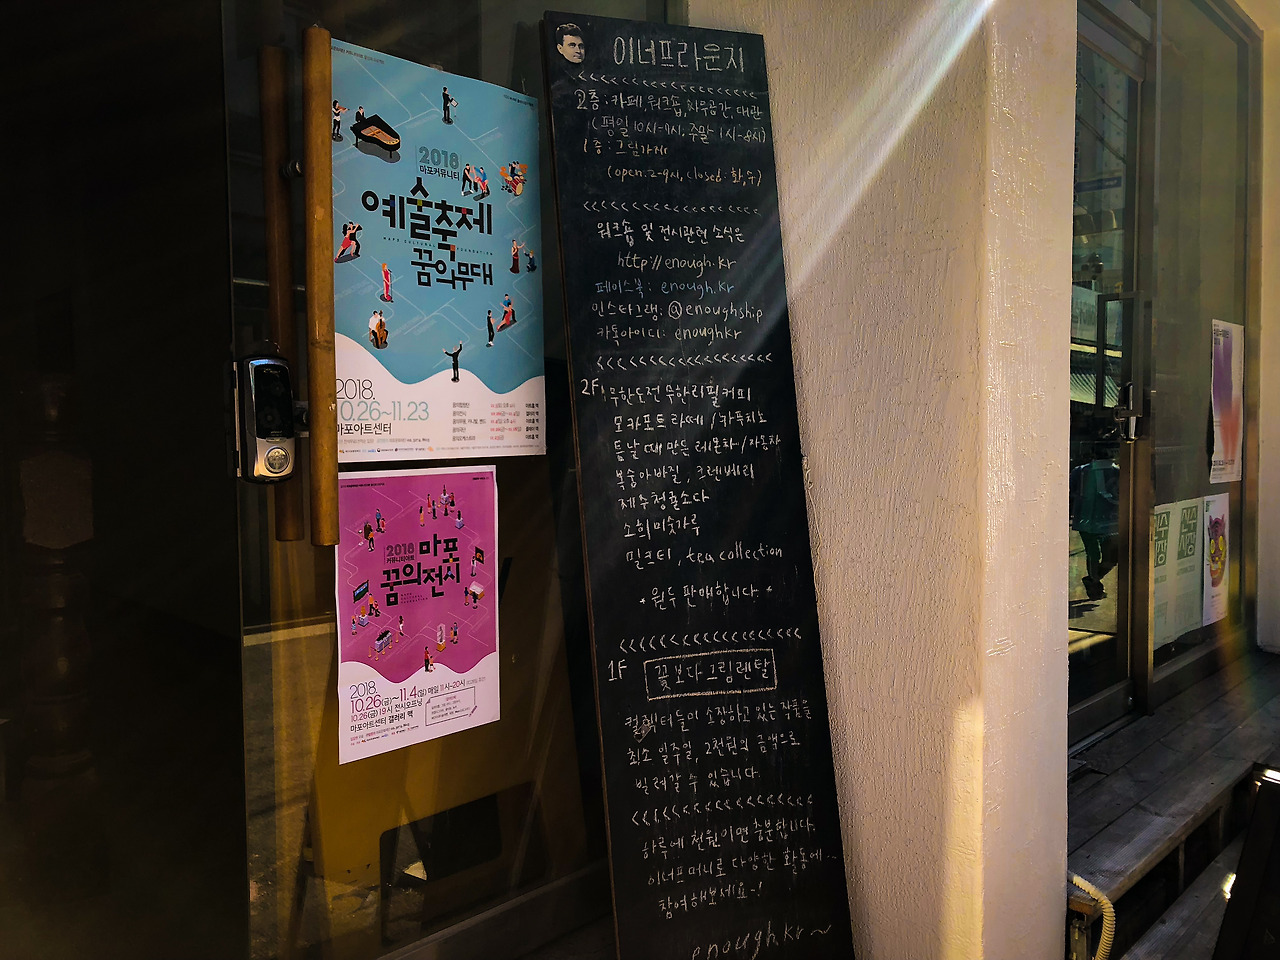 2018
마포커뮤니티
예술축제
MAPO CULTURAL FOUNDATION
꿈의무대
2018.
10.26~11.23
마포아트센터
2018
커뮤니티아트
마포
꿈의전시
2018.
10.26(금)~11.4(일) 매일 11시-20시
10.26(금) 19시 전시오프닝
마포아트센터 갤러리 맥
이너프라운지
2층: 카페, 워크숍, 사무공간, 대관
(평일 10시-9시, 주말 1시-8시)
1층: 그림가게
(open: 2-9시, closed: 화,수)
워크숍 및 전시관련 소식은
http://enough.kr
페이스북: enough.kr
인스타그램: @enoughship
카톡아이디: enoughkr
2F 무한도전 무한리필 커피
모카포트 라떼 / 카푸치노
틈날 때 만든 레몬차 / 자몽차
복숭아바질, 크렌베리
제주청귤소다
소희미숫가루
밀크티, tea collection
원두 판매합니다.
1F 꽃보다그림렌탈
컬렉터들이 소장하고 있는 작품을
최소 일주일, 2천원의 금액으로
빌려갈 수 있습니다.
하루에 천원이면 충분합니다.
이너프머니로 다양한 활동에...
참여해보세요~!
enough.kr~